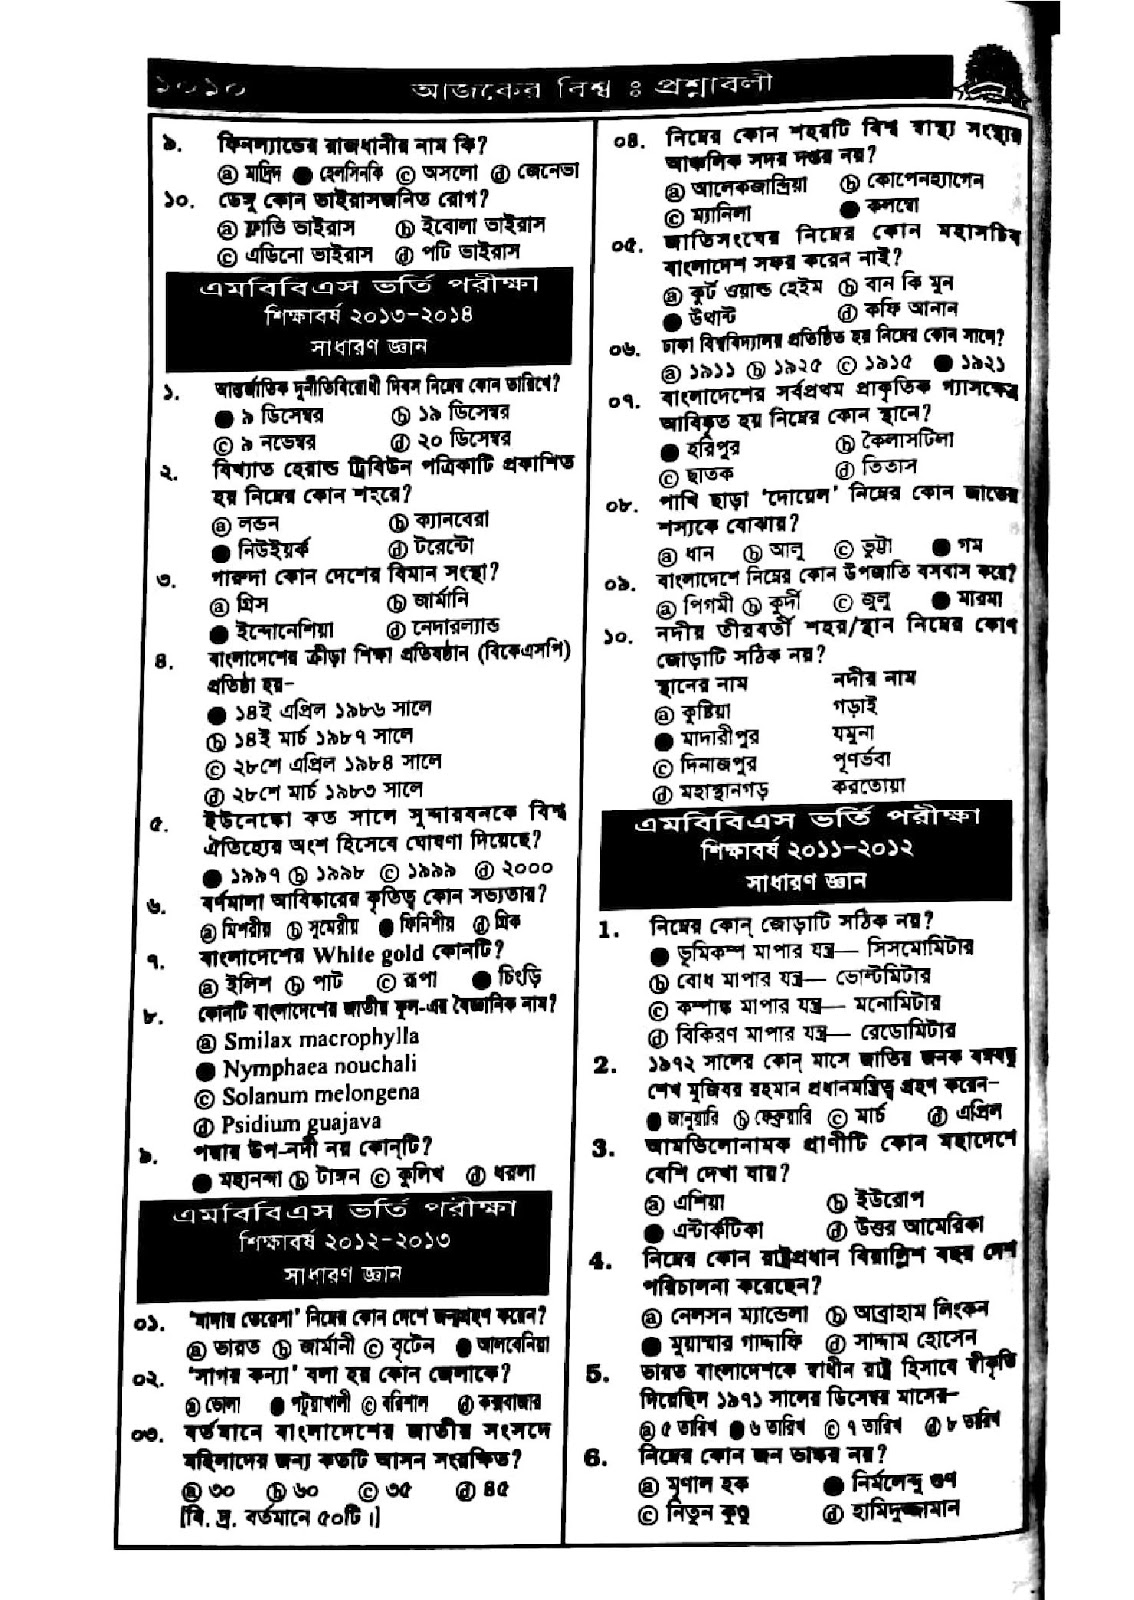 ১০১০
আজকের বিশ্ব ঃ প্রশ্নাবলী
৯. ফিনল্যান্ডের রাজধানীর নাম কি?
ⓐ মাদ্রিদ ● হেলসিনকি ⓒ অসলো ⓓ জেনেভা
১০. ডেঙ্গু কোন ভাইরাসজনিত রোগ?
ⓐ ফ্লাভি ভাইরাস ⓑ ইবোলা ভাইরাস
ⓒ এডিনো ভাইরাস ⓓ পটি ভাইরাস
এমবিবিএস ভর্তি পরীক্ষা
শিক্ষাবর্ষ ২০১৩-২০১৪
সাধারণ জ্ঞান
১. আন্তর্জাতিক দুর্নীতিবিরোধী দিবস নিম্নের কোন তারিখে?
● ৯ ডিসেম্বর ⓑ ১৯ ডিসেম্বর
ⓒ ৯ নভেম্বর ⓓ ২০ ডিসেম্বর
২. বিখ্যাত হেরাল্ড ট্রিবিউন পত্রিকাটি প্রকাশিত
হয় নিম্নের কোন শহরে?
ⓐ লন্ডন ⓑ ক্যানবেরা
● নিউইয়র্ক ⓓ টরেন্টো
৩. গারুদা কোন দেশের বিমান সংস্থা?
ⓐ গ্রিস ⓑ জার্মানি
● ইন্দোনেশিয়া ⓓ নেদারল্যান্ড
৪. বাংলাদেশের ক্রীড়া শিক্ষা প্রতিষ্ঠান (বিকেএসপি)
প্রতিষ্ঠা হয়-
● ১৪ই এপ্রিল ১৯৮৬ সালে
ⓑ ১৪ই মার্চ ১৯৮৭ সালে
ⓒ ২৮শে এপ্রিল ১৯৮৪ সালে
ⓓ ২৮শে মার্চ ১৯৮৩ সালে
৫. ইউনেস্কো কত সালে সুন্দারবনকে বিশ্ব
ঐতিহ্যের অংশ হিসেবে ঘোষণা দিয়েছে?
● ১৯৯৭ ⓑ ১৯৯৮ ⓒ ১৯৯৯ ⓓ ২০০০
৬. বর্ণমালা আবিষ্কারের কৃতিত্ব কোন সভ্যতার?
ⓐ মিশরীয় ⓑ সুমেরীয় ● ফিনিশীয় ⓓ গ্রিক
৭. বাংলাদেশের White gold কোনটি?
ⓐ ইলিশ ⓑ পাট ⓒ রূপা ● চিংড়ি
৮. কোনটি বাংলাদেশের জাতীয় ফুল-এর বৈজ্ঞানিক নাম?
ⓐ Smilax macrophylla
● Nymphaea nouchali
ⓒ Solanum melongena
ⓓ Psidium guajava
৯. পদ্মার উপ-নদী নয় কোন্‌টি?
● মহানন্দা ⓑ টাঙ্গন ⓒ কুলিখ ⓓ ধরলা
এমবিবিএস ভর্তি পরীক্ষা
শিক্ষাবর্ষ ২০১২-২০১৩
সাধারণ জ্ঞান
০১. 'মাদার তেরেসা' নিম্নের কোন দেশে জন্মগ্রহণ করেন?
ⓐ ভারত ⓑ জার্মানী ⓒ বৃটেন ● আলবেনিয়া
০২. 'সাগর কন্যা' বলা হয় কোন জেলাকে?
ⓐ ভোলা ● পটুয়াখালী ⓒ বরিশাল ⓓ কক্সবাজার
০৩. বর্তমানে বাংলাদেশের জাতীয় সংসদে
মহিলাদের জন্য কতটি আসন সংরক্ষিত?
ⓐ ৩০ ⓑ ৬০ ⓒ ৩৫ ⓓ ৪৫
[বি. দ্র. বর্তমানে ৫০টি।]
০৪. নিম্নের কোন শহরটি বিশ্ব স্বাস্থ্য সংস্থার
আঞ্চলিক সদর দপ্তর নয়?
ⓐ আলেকজান্দ্রিয়া ⓑ কোপেনহ্যাগেন
ⓒ ম্যানিলা ● কলম্বো
০৫. জাতিসংঘের নিম্নের কোন মহাসচিব
বাংলাদেশ সফর করেন নাই?
ⓐ কুর্ট ওয়াল্ড হেইম ⓑ বান কি মুন
● উথান্ট ⓓ কফি আনান
০৬. ঢাকা বিশ্ববিদ্যালয় প্রতিষ্ঠিত হয় নিম্নের কোন সালে?
ⓐ ১৯১১ ⓑ ১৯২৫ ⓒ ১৯১৫ ● ১৯২১
০৭. বাংলাদেশের সর্বপ্রথম প্রাকৃতিক গ্যাসক্ষেত্র
আবিষ্কৃত হয় নিম্নের কোন স্থানে?
● হরিপুর ⓑ কৈলাসটিলা
ⓒ ছাতক ⓓ তিতাস
০৮. পাখি ছাড়া 'দোয়েল' নিম্নের কোন জাতের
শস্যকে বোঝায়?
ⓐ ধান ⓑ আলু ⓒ ভুট্টা ● গম
০৯. বাংলাদেশে নিম্নের কোন উপজাতি বসবাস করে?
ⓐ পিগমী ⓑ কুর্দী ⓒ জুলু ● মারমা
১০. নদীর তীরবর্তী শহর/স্থান নিম্নের কোন
জোড়াটি সঠিক নয়?
স্থানের নাম নদীর নাম
ⓐ কুষ্টিয়া গড়াই
● মাদারীপুর যমুনা
ⓒ দিনাজপুর পূণর্ভবা
ⓓ মহাস্থানগড় করতোয়া
এমবিবিএস ভর্তি পরীক্ষা
শিক্ষাবর্ষ ২০১১-২০১২
সাধারণ জ্ঞান
1. নিম্নের কোন্ জোড়াটি সঠিক নয়?
● ভূমিকম্প মাপার যন্ত্র— সিসমোমিটার
ⓑ বোধ মাপার যন্ত্র— ভোল্টমিটার
ⓒ কম্পাঙ্ক মাপার যন্ত্র— মনোমিটার
ⓓ বিকিরণ মাপার যন্ত্র— রেডোমিটার
2. ১৯৭২ সালের কোন্ মাসে জাতির জনক বঙ্গবন্ধু
শেখ মুজিবর রহমান প্রধানমন্ত্রিত্ব গ্রহণ করেন-
● জানুয়ারি ⓑ ফেব্রুয়ারি ⓒ মার্চ ⓓ এপ্রিল
3. আমডিলোনামক প্রাণীটি কোন মহাদেশে
বেশি দেখা যায়?
ⓐ এশিয়া ⓑ ইউরোপ
● এন্টার্কটিকা ⓓ উত্তর আমেরিকা
4. নিম্নের কোন রাষ্ট্রপ্রধান বিয়াল্লিশ বছর দেশ
পরিচালনা করেছেন?
ⓐ নেলসন ম্যান্ডেলা ⓑ আব্রাহাম লিংকন
● মুয়াম্মার গাদ্দাফি ⓓ সাদ্দাম হোসেন
5. ভারত বাংলাদেশকে স্বাধীন রাষ্ট্র হিসাবে স্বীকৃতি
দিয়েছিল ১৯৭১ সালের ডিসেম্বর মাসের-
ⓐ ৫ তারিখ ● ৬ তারিখ ⓒ ৭ তারিখ ⓓ ৮ তারিখ
6. নিম্নের কোন জন ভাস্কর নয়?
ⓐ মৃণাল হক ● নির্মলেন্দু গুণ
ⓒ নিতুন কুণ্ডু ⓓ হামিদুজ্জামান